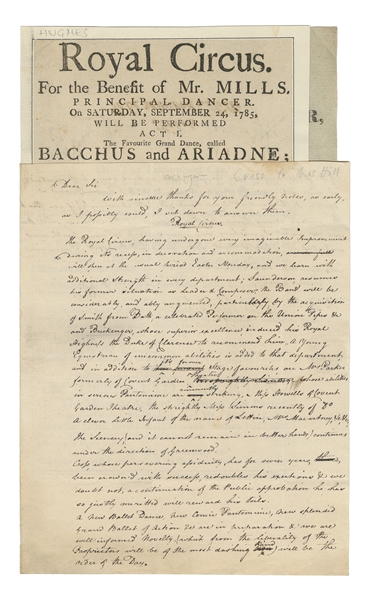 HUGHES
Royal Circus.
For the Benefit of Mr. MILLS,
PRINCIPAL DANCER.
On SATURDAY, SEPTEMBER 24, 1785,
WILL BE PERFORMED
ACT I.
The Favourite Grand Dance, called
BACCHUS and ARIADNE;
R,
Dear Sir
With thanks for your friendly notes, as early,
as I possibly could, I sit down to answer them.
Royal Circus
The Royal Circus, having undergone every imaginable Improvement
during its recess, in decoration and accommodation,
will open at the usual period Easter Monday, and we learn with
additional Strength in every department; Saunderson assumes
his former situation as Leader & Composer; the Band will be
considerably, and ably augmented, particularly by the acquisition
of Smith from Bath a celebrated Performer on the Union Pipes &c
and Buckinger, whose superior excellence induced his Royal
Highness the Duke of Clarence to recommend him, A Young
of uncommon abilities is added to that department,
and in addition to the former stage favourites are Mrs Parker
formerly of Covent Garden Theatre whose abilities
in serious Pantomime are eminently striking, & Miss Howells of Covent
Garden Theatre, the sprightly Miss Simms recently of Do
A clever little Infant of the name of
the Scenery, (and it cannot remain in better hands) continues
under the direction of Greenwood.
Cross whose persevering assiduity, has for seven years,
been crowned with success, redoubles his exertions & we
doubt not, a continuation of the Public approbation he has
so justly merited will reward his toils.
A New Ballet Dance, New Comic Pantomime, New splendid
Grand Ballet of Action &c are in preparation & we are
well informed Novelty (which from the liberality of the
Proprietors will be of the most dashing kind) will be the
order of the Day.